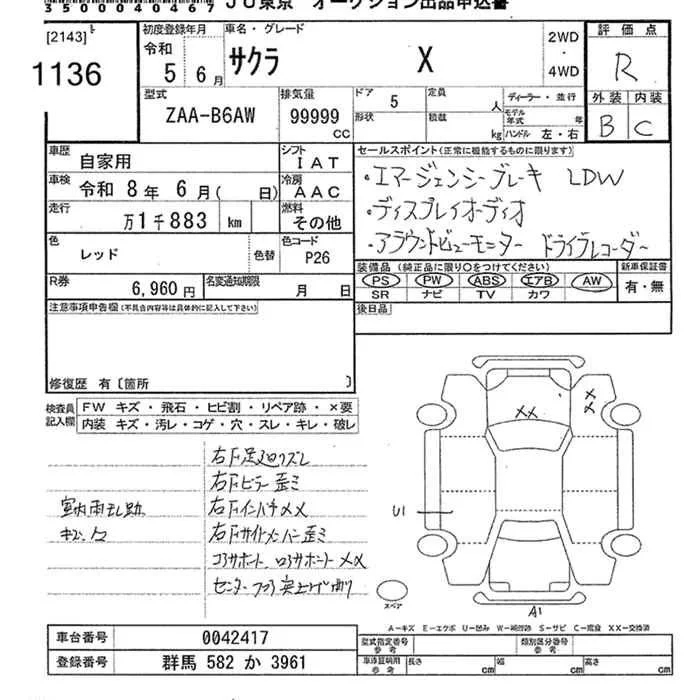 35000040467 JU東京 オークション出品申込書
[2143]
1136
初度登録年月
令和
5 6月
車名・グレード
サクラ X
2WD
・
4WD
評価点
R
外装 内装
B C
型式
ZAA-B6AW
排気量
99999
cc
ドア 5
形状
定員 人
積載 kg
ディーラー・並行
モデル年式 年
ハンドル 左・右
車歴
自家用
シフト
IAT
車検
令和 8年 6月( 日)
冷房
AAC
走行
万1千883 km
燃料
その他
色
レッド
色替
色コード
P26
R券
6,960円
名変通知期限
月 日
セールスポイント(正常に機能するものに限ります)
・エマージェンシーブレーキ LDW
・ディスプレイオーディオ
・アラウンドビューモニター ドライブレコーダー
装備品 (純正品に限り〇をつけてください)
PS PW ABS エアB AW
SR ナビ TV カワ
新車保証書
有・無
後日品
注意事項申告欄(不具合内容等は具体的に記入して下さい)
修復歴 有〔箇所 〕
検査員
記入欄
FW キズ・飛石・ヒビ割・リペア跡・×要
内装 キズ・汚レ・コゲ・穴・スレ・キレ・破レ
右F足廻りズレ
右Fピラー歪ミ
右FインパネXX
右Fサイドメンバー歪ミ
コアサポート、ロアサポートXX
センターフロア突上げ有り
キズ、
XX
XX
U1
A1
スペア
A-キズ E-エクボ U-凹み W-補修跡 S-サビ C-腐食 XX-交換済
車台番号 0042417
登録番号 群馬 582 か 3961
型式指定番号
参考
類別区分番号
参考
車庫証明用
参考
長さ cm
幅 cm
高さ cm